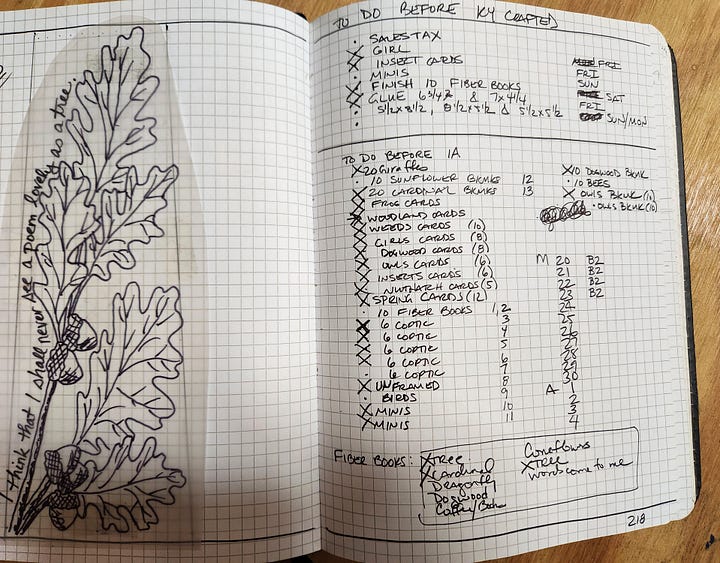 I think that I shall never see a poem lovely as a tree.
TO DO BEFORE KY CRAFTED
SALES TAX
GIRL
INSECT CARDS FRI
MINIS FRI
FINISH 10 FIBER BOOKS SUN
GLUE 6 3/4 & 7 x 4 1/4 SAT
5 1/2 x 8 1/2, 8 1/2 x 5 1/2 & 5 1/2 x 5 1/2 FRI
SUN/MON
TO DO BEFORE IA
X 20 Giraffes X 10 DOGWOOD BKMK
10 SUNFLOWER BKMKS 12 10 BEES
X 20 CARDINAL BKMKS 13 X OWLS BKMK (10)
X FROG CARDS OWLS BKMK (10)
X WOODLAND CARDS
X WEEDS CARDS (10)
X GIRLS CARDS (8)
X DOGWOOD CARDS (8)
X OWLS CARDS (6) M 20 B2
X INSECTS CARDS (6) 21 B2
X NUTHATCH CARDS (5) 22 B2
X SPRING CARDS (12) 23 B2
10 FIBER BOOKS 1,2 24
X 6 COPTIC 3 25
X 6 COPTIC 4 26
X 6 COPTIC 5 27
X 6 COPTIC 6 28
6 COPTIC 7 29
X UNFRAMED 8 30
BIRDS 9 A 1
X MINIS 10 2
X MINIS 11 3
4
FIBER BOOKS: X TREE Coneflowers
X Cardinal X TREE
Dragonfly words come to me
Dogwood
Coffee/
218